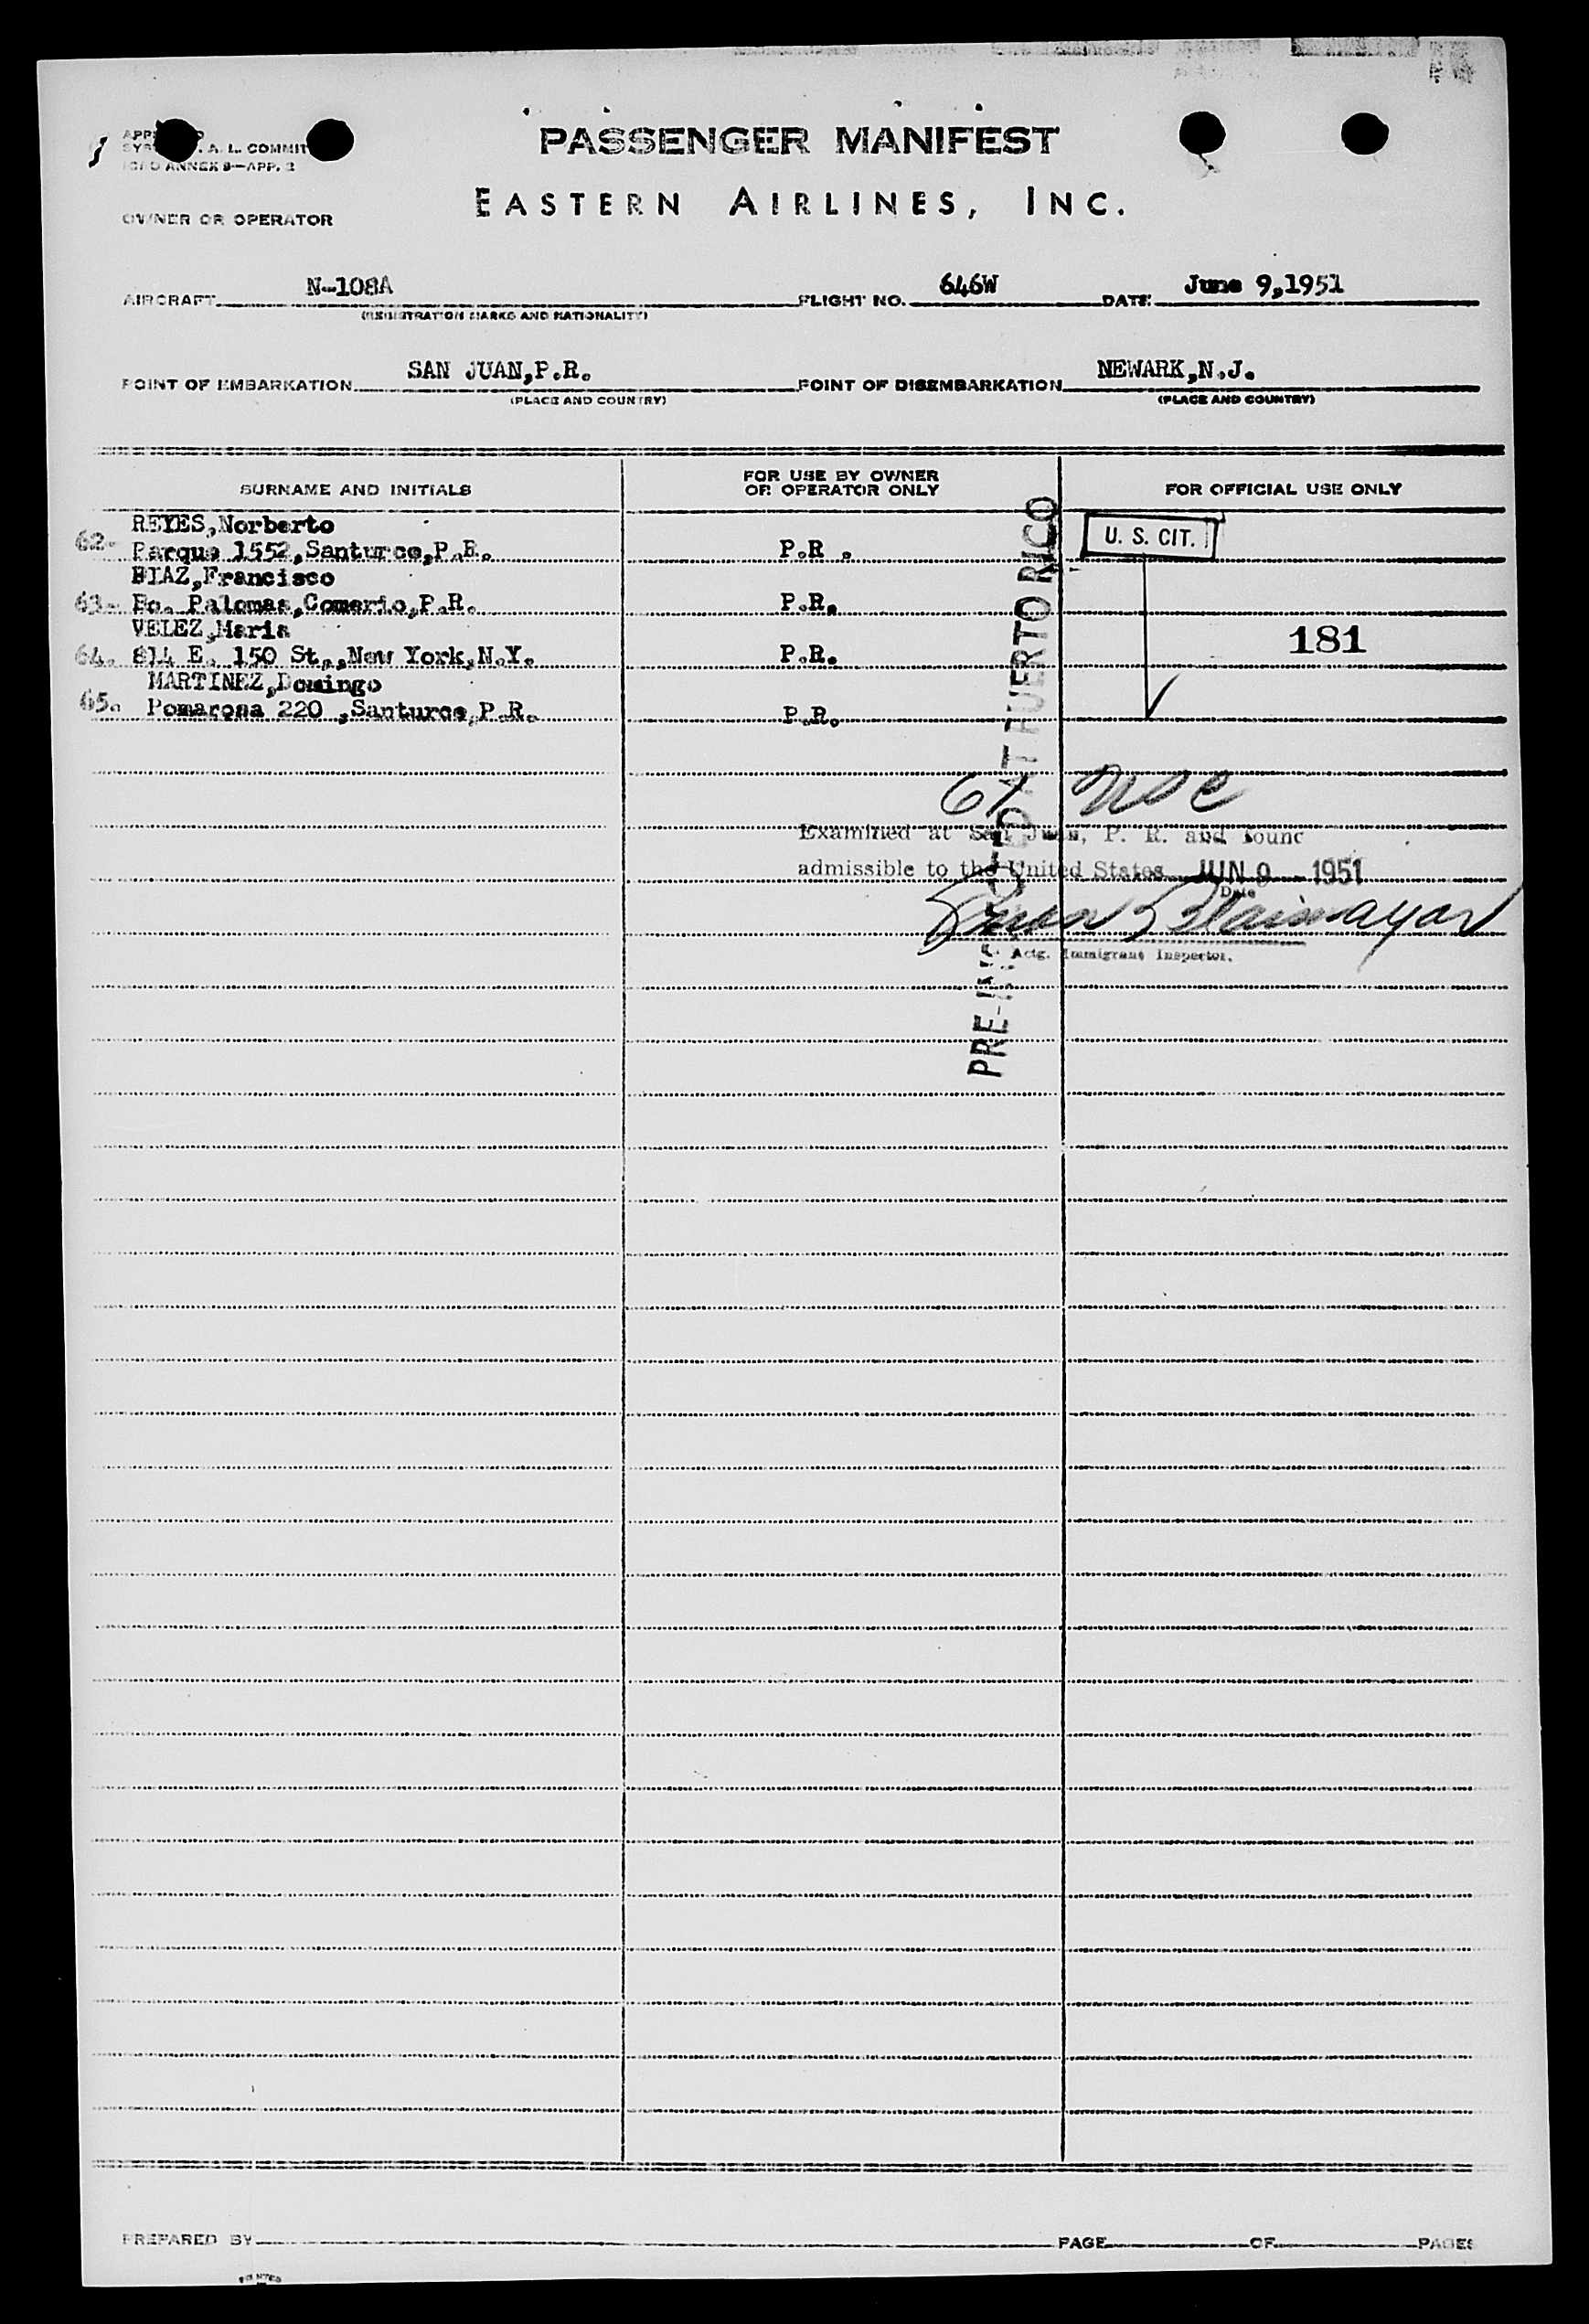 PASSENGER MANIFEST
A. L. COMMIT
ICAO ANNEX 9—APP. 2
EASTERN AIRLINES, INC.
OWNER OR OPERATOR
AIRCRAFT N-108A FLIGHT NO. 646W DATE June 9,1951
(REGISTRATION MARKS AND NATIONALITY)
POINT OF EMBARKATION SAN JUAN,P.R. POINT OF DISEMBARKATION NEWARK,N.J.
(PLACE AND COUNTRY) (PLACE AND COUNTRY)
SURNAME AND INITIALS FOR USE BY OWNER OR OPERATOR ONLY FOR OFFICIAL USE ONLY
REYES,Norberto
62. Parque 1552,Santurce,P.R. P.R . U. S. CIT.
DIAZ,Francisco
63. Bo. Palomas,Comerio,P.R. P.R.
VELEZ,Maria 181
64. 814 E. 150 St.,New York,N.Y. P.R.
MARTINEZ,Domingo
65. Pomarosa 220 ,Santurce,P.R. P.R.
PRE-INSPECTED AT PUERTO RICO
Examined at San Juan, P. R. and found
admissible to the United States JUN 9 1951
Date
Actg. Immigrant Inspector.
PREPARED BY PAGE OF PAGES